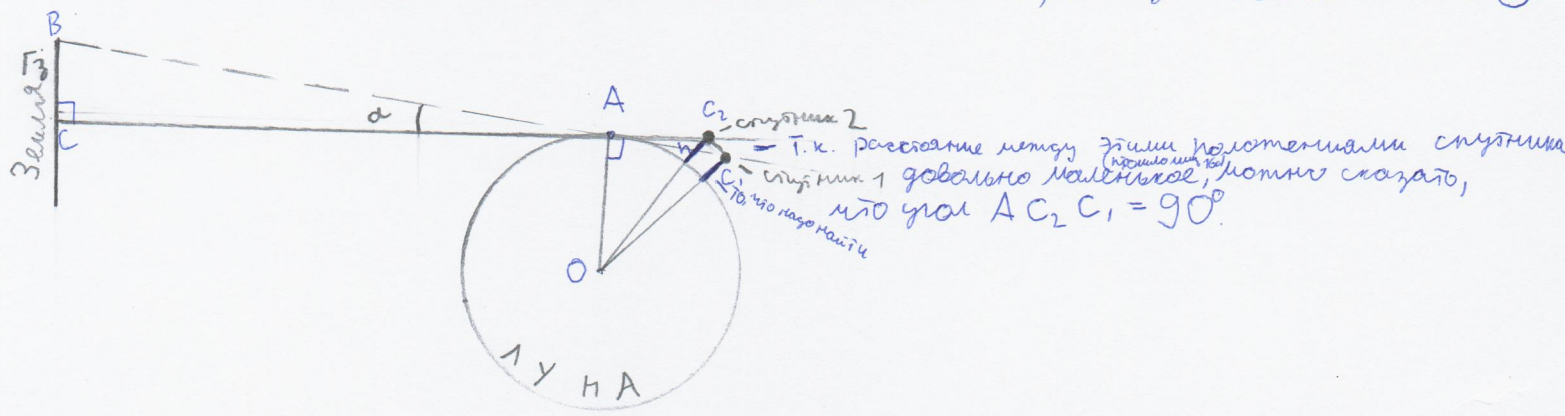 B
Земля
C
α
A
C₂
спутник 2
h
C₁
спутник 1
то, что надо найти
O
ЛУНА
– Т.к. расстояние между этими положениями спутника
довольно маленькое, можно сказать,
что угол A C₂ C₁ = 90°.